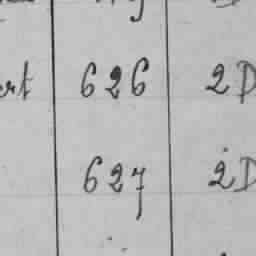 626 2D
627 2D